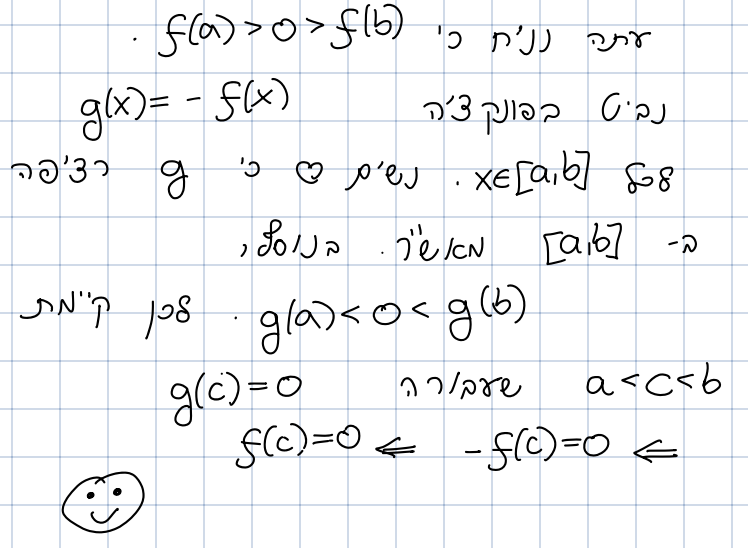 עתה נניח כי f(a) > 0 > f(b) .
נביט בפונקציה g(x) = - f(x)
לכל x∈[a,b] . נשים ♡ כי g רציפה
ב- [a,b] מאש"ר. בנוסף,
g(a) < 0 < g(b) . לכן קיימת
a < c < b שעבורה g(c) = 0
⇐ -f(c) = 0 ⇐ f(c) = 0